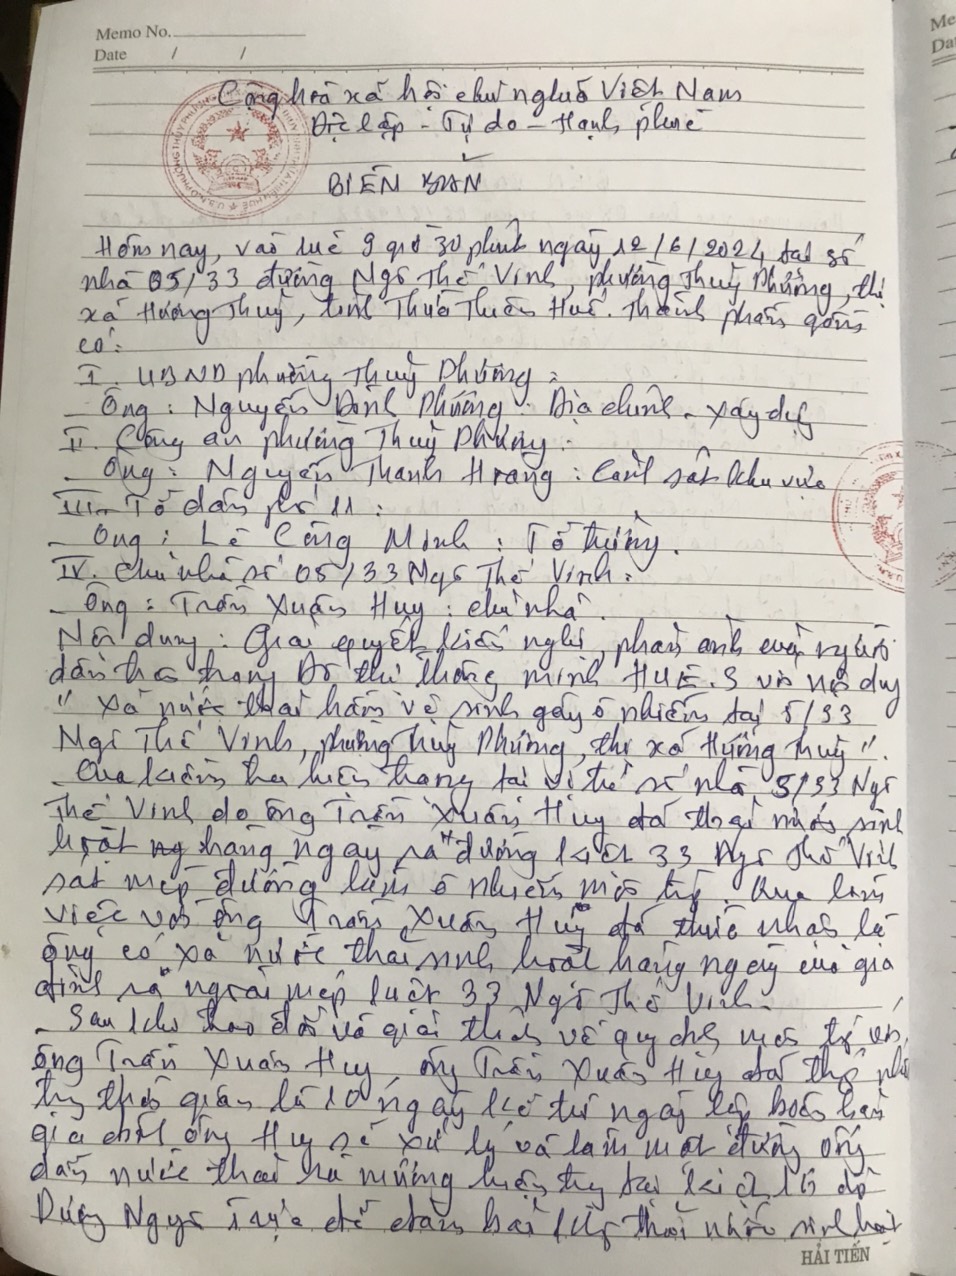 Memo No.
Date / /
Cộng hoà xã hội chủ nghĩa Việt Nam
Độc lập - Tự do - Hạnh phúc
BIÊN BẢN
Hôm nay, vào lúc 9 giờ 30 phút ngày 12/6/2024 tại số
nhà 05/33 đường Ngô Thế Vinh, phường Thuỷ Phương, thị
xã Hương Thuỷ, tỉnh Thừa Thiên Huế. Thành phần gồm
có:
I. UBND phường Thuỷ Phương:
- Ông: Nguyễn Đình Phương: Địa chính - Xây dựng
II. Công an phường Thuỷ Phương:
- Ông: Nguyễn Thanh Hoàng: Cảnh sát khu vực
III. Tổ dân phố 11:
- Ông: Lê Công Minh: Tổ trưởng.
IV. Chủ nhà số 05/33 Ngô Thế Vinh:
- Ông: Trần Xuân Huy: chủ nhà.
Nội dung: Giải quyết kiến nghị, phản ánh của người
dân theo trang Đô thị thông minh HUE.S với nội dung
"Xả nước thải hầm vệ sinh gây ô nhiễm tại 5/33
Ngô Thế Vinh, phường Thuỷ Phương, thị xã Hương Thuỷ".
- Qua kiểm tra hiện trạng tại vị trí số nhà 5/33 Ngô
Thế Vinh do ông Trần Xuân Huy đã thoát nước sinh
hoạt hàng ngày ra đường kiệt 33 Ngô Thế Vinh
sát mép đường làm ô nhiễm môi trường. Qua làm
việc với ông Trần Xuân Huy đã thừa nhận là
ông có xả nước thải sinh hoạt hàng ngày của gia
đình ra ngoài mép kiệt 33 Ngô Thế Vinh.
- Sau khi trao đổi và giải thích về quy chế môi trường với
ông Trần Xuân Huy, ông Trần Xuân Huy đã thống nhất
trong thời gian là 10 ngày kể từ ngày lập biên bản
gia đình ông Huy sẽ xử lý và làm một đường ống
dẫn nước thải ra mương hiện trạng tại kiệt 16 đồ
Dương Ngựa để đảm bảo thoát nước sinh hoạt
HẢI TIẾN